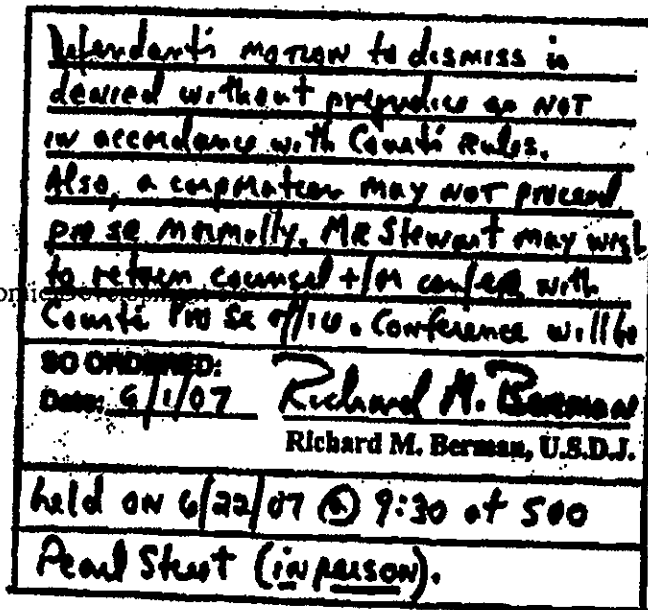 Defendant's MOTION to dismiss is
denied without prejudice as NOT
in accordance with Court's Rules.
Also, a corporation may NOT proceed
pro se normally. Mr Stewart may wish
to retain counsel +/or confer with
Court's Pro Se office. Conference will be
SO ORDERED:
Date: 6/1/07 Richard M. Berman
Richard M. Berman, U.S.D.J.
held ON 6/22/07 @ 9:30 at 500
Pearl Street (in person).